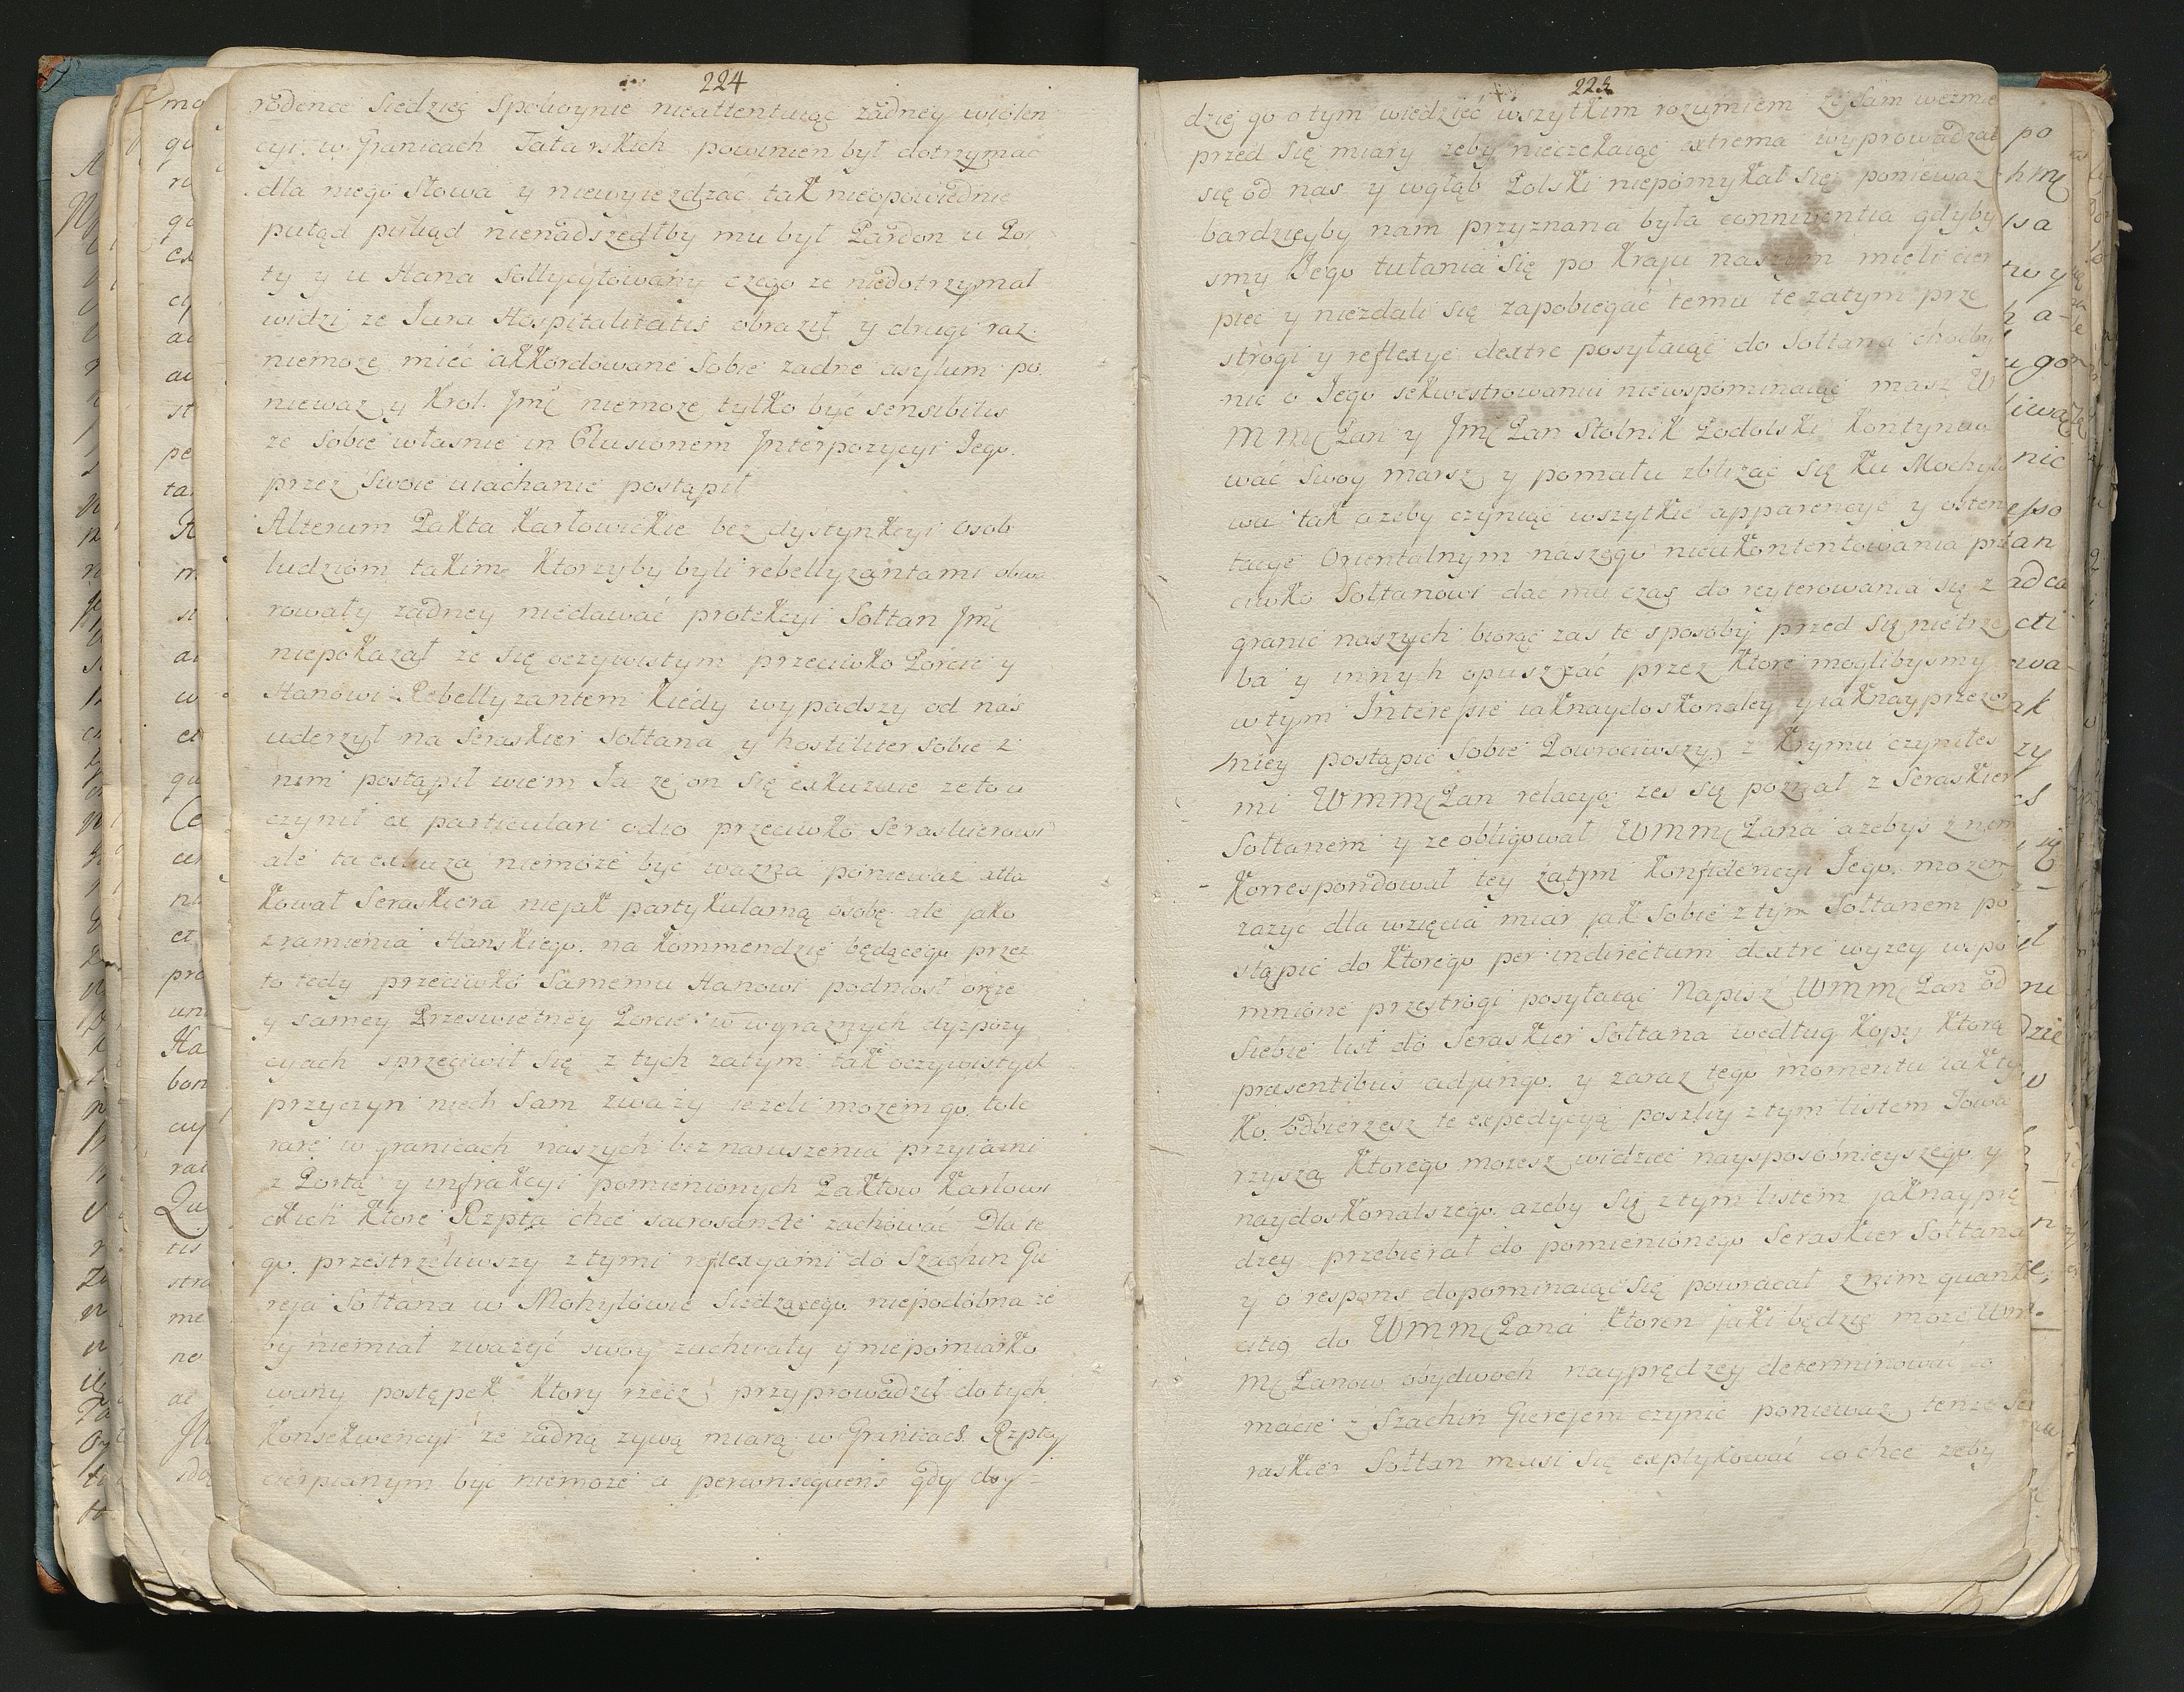 224
rodence siedzieć spokoynie nieattentuiąc żadney wiolen
cyi w Granicach Tatarskich powinien był dotrzymać
dla niego słowa y niewyiezdzać tak nieopowiednie
putąd pukąd nienadszedłby mu był Pardon u Por
ty y u Hana sollicytowany czego ze niedotrzymał
widzi ze Jura Hospitalitatis obraził y drugi raz
niemoże mieć akkordowane sobie zadne asylum po
niewaz y Krol Jmć niemoze tylko być sensibilis
ze sobie własnie in Elusionem Interpozycyi Jego
przez swoie uiachanie postąpił
Alterum Pakta Karłowickie bez dystynkcyi osob
ludziom takim Ktorzyby byli rebellyzantami obwa
rowały żadney niedawać protekcyi Sołtan Jmć
niepokazał ze się oczywistym przeciwko Porcie y
Hanowi Rebellyzantem kiedy wypadszy od nas
uderzył na Seraskier Sołtana y hostiliter sobie z
nim postąpił wiem Ja ze on się exkuzuie ze to u
czynił ex particulari odio przeciwko Seraskierowi
ale ta exkuza niemoze być wazna poniewaz atta
kował Seraskiera niejak partykularną osobę ale jako
z ramienia Hanskiego na kommendzie będącego przez
to tedy przeciwko samemu Hanowi podniosł oręze
y samey Przeswietney Porcie w wyraznych dyzpozy
cyach sprzeciwił się z tych zatym tak oczywistych
przyczyn niech sam zwazy iezeli mozem go tole
rare w granicach naszych bez naruszenia przyiazni
z Portą y infrakcyi pomienionych Paktow Karłowi
ckich Ktore Rzpta chce sacrosancte zachować Dla te
go przestrzeliwszy z tymi reflexyami do Szachin Gi
reja Sołtana w Mohylowie siedzącego niepodobna ze
by niemiał zwazyć swoy zuchwały y niepomiarko
wany postępek Ktory rzeczy przyprowadził do tych
Konsekwencyi ze zadną zywą miarą w Granicach Rzpty
cierpianym być niemoze a perconsequens gdy doy
223
dzie go o tym wiedzieć wszytkim rozumiem ze sam weźmie
przed się miary zeby nieczekaiąc extrema wyprowadzał
się od nas y wgłąb Polski niepomykał się poniewaz
bardzieyby nam przyznana była connivential gdyby
smy Jego tułania się po Kraju naszym mieli cier
pieć y niezdali się zapobiegać temu te zatym prze
strogi y reflexye dextre posyłaiąc do Sołtana choćby
nic o Jego sekwestrowaniu niewspominaiąc masz W
MMć Pan y Jmć Pan Stolnik Podolski Kontynuo
wać swoy marsz y pomału zblizać się ku Mochyle
wu tak azeby czyniąc wszytkie apparencye y osten
tacye Orientalnym naszego nieukontentowania prze
ciwko Sołtanowi dać mu czas do reyterowania się z
granic naszych biorąc zas te sposoby przed się nietrze
ba y innych opuszczać przez ktore moglibysmy
w tym Interessie iaknaydoskonaley y iaknayprzezor
niey postąpić sobie Powrociwszy z Krymu czyniłes
mi WMMć Pan relacyą zes się poznał z Seraskier
Sołtanem y ze obligował WMMć Pana azebys z nim
Korrespondował tey zatym Konfidencyi Jego mozem
zazyć dla wzięcia miar jak sobie z tym Sołtanem po
stąpić do Ktorego per indirectum dextre wyzey wspo
mnione przestrogi posyłaiąc Napisz WMMć Pan od
siebie list do Seraskier Sołtana według kopij Ktorą
praesentibus adjungo y zaraz tego momentu iak ty
ko odbierzesz te expedycyą poszliy z tym listem Towa
rzysza Ktorego mozesz widzieć naysposobnieyszego y
naydoskonalszego azeby się z tym listem jaknayprę
dzey przebierał do pomienionego Seraskier Sołtana
y o respons dopominaiąc się powracał z nim quanto
citiq do WMMć Pana Ktoren jaki będzie moze WM
Mć Panow obydwoch nayprędzey determinować co
macie z Szachin Gierejem czynić poniewaz tenze Se
raskier Sołtan musi się explykować co chce zeby